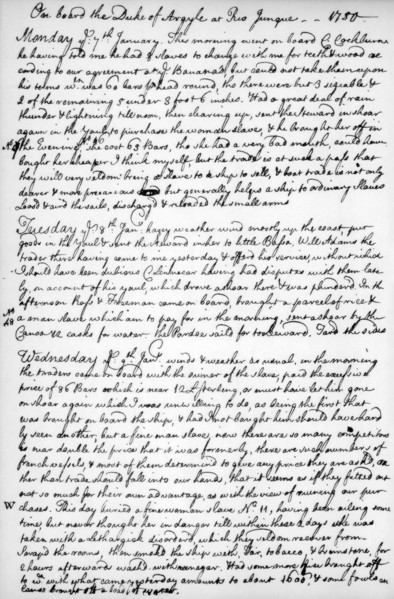 On board the Duke of Argyle at Rio Junque -- 1750
Monday yᵉ 7th January. This morning went on board C. Cockburne
he having told me he had 8 slaves to change with me for teeth & wood ac
cording to our agreement at yᵉ Bananas but could not take them upon
his terms wᶜʰ was 60 bars pʳ head round, tho there were but 3 sizeable &
2 of the remaining 5 under 3 foot 6 inches. Had a great deal of rain
thunder & lightning till noon, then clearing up, sent the Steward in shoar
again in the yaul to purchase the woman slave, & he brought her off in
the Evening. She cost 63 Bars, tho she had a very bad mouth, could have
bought her cheaper I think myself, but the trade is at such a pass that
they will very seldom bring a slave to a ship to sell, & boat trade is not only
dearer & more precarious but generally helps a ship to ordinary slaves
Loosd & aird the sails, dischargd & reloaded the small arms
Tuesday yᵉ 8th Janʸ. hazey weather wind mostly up the coast, put
goods in the yaul & sent the Steward in her to little Bassa. Will Adams the
trader there having come to me yesterday & offerd his services, without which
I should have been dubious having had disputes with them late
ly, on account of his yaul, which drove ashoar there & was plunderd. In the
afternoon & Freeman came on board, brought a parcel of rice &
a man slave which am to pay for in the morning, sent ashoar by the
Canoe 2 casks for water. The Pardoe saild for to leeward. Tard the sides
Wednesday yᵉ 9th Janʸ. winds & weather as usual, in the morning
the traders came on board with the owner of the slave, paid the excessive
price of 86 Bars which is near 12£ sterling, or must have let him gone
on shoar again which I was unwilling to do, as being the first that
was brought on board the ship, & had I not bought him should have hard
ly seen another, but a fine man slave, now there are so many competitors
is near double the price that it was formerly, there are such numbers of
french vessels, & most of them determind to give any price they are askd, ra
ther than trade should fall into our hands, that it seems as if they fitted out
not so much for their own advantage, as with the view of ruining our pur
chases. This day buried a fine woman slave Nº 11, having been ailing some
time, but never thought her in danger till within these 2 days she was
taken with a Lethargick disorder, which they seldom recover from
Scrapd the rooms, then smoakd the ship with Tar, tobacco, & brimstone, for
2 hours afterwards washd with vinegar. Had some more rice brought off
to wᶜʰ with what came yesterday amounts to about 1600ˡᵇ, & some fowls
canoe brought off a of water.
W